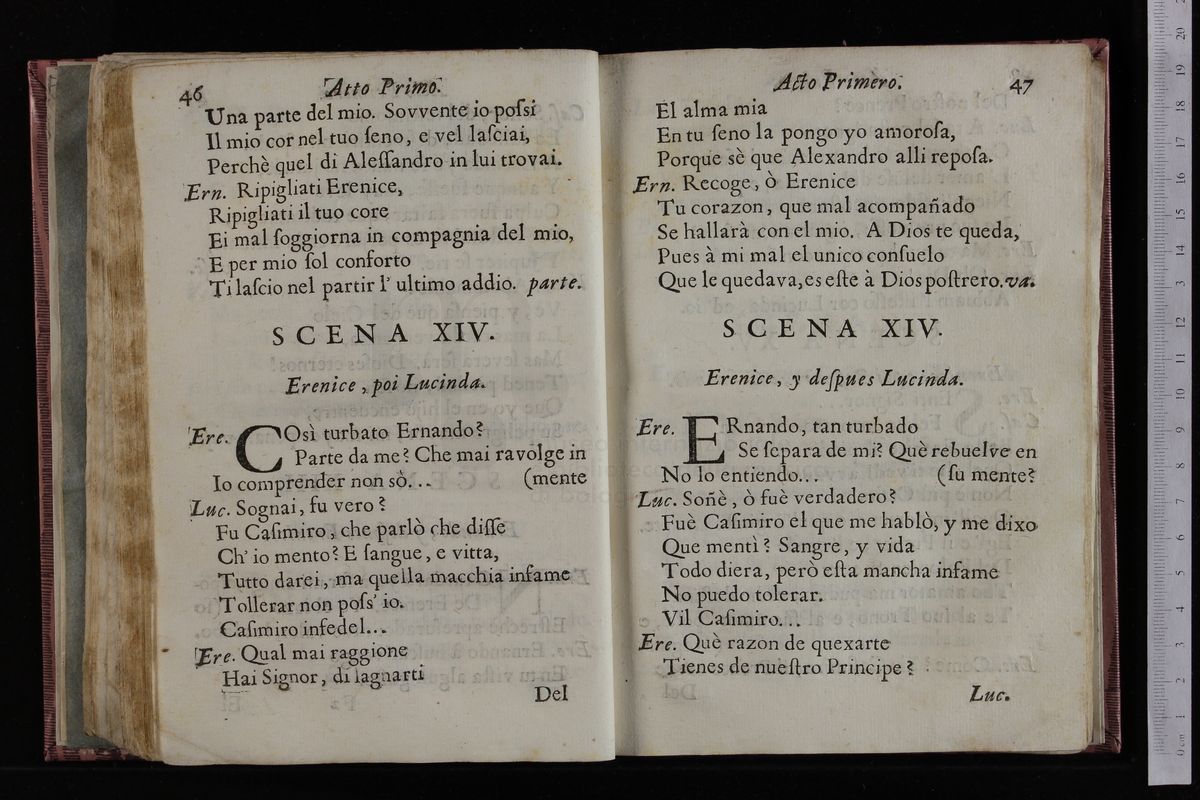 46 Atto Primo.
Una parte del mio. Sovvente io poſsi
Il mio cor nel tuo ſeno, e vel laſciai,
Perchè quel di Aleſſandro in lui trovai.
Ern. Ripigliati Erenice,
Ripigliati il tuo core
Ei mal ſoggiorna in compagnia del mio,
E per mio ſol conforto
Ti laſcio nel partir l' ultimo addio. parte.
SCENA XIV.
Erenice, poi Lucinda.
Ere. COsì turbato Ernando?
Parte da me? Che mai ravolge in
Io comprender non sò... (mente
Luc. Sognai, fu vero?
Fu Caſimiro, che parlò che diſſe
Ch' io mento? E ſangue, e vitta,
Tutto darei, ma quella macchia infame
Tollerar non poſs' io.
Caſimiro infedel...
Ere. Qual mai raggione
Hai Signor, di lagnarti
Del
Acto Primero. 47
El alma mia
En tu ſeno la pongo yo amoroſa,
Porque sè que Alexandro alli repoſa.
Ern. Recoge, ò Erenice
Tu corazon, que mal acompañado
Se hallarà con el mio. A Dios te queda,
Pues à mi mal el unico conſuelo
Que le quedava, es eſte à Dios poſtrero. va.
SCENA XIV.
Erenice, y deſpues Lucinda.
Ere. ERnando, tan turbado
Se ſepara de mi? Què rebuelve en
No lo entiendo... (ſu mente?
Luc. Soñè, ò fuè verdadero?
Fuè Caſimiro el que me hablò, y me dixo
Que mentì? Sangre, y vida
Todo diera, però eſta mancha infame
No puedo tolerar.
Vil Caſimiro...
Ere. Què razon de quexarte
Tienes de nueſtro Principe?
Luc.
0 cm 1 2 3 4 5 6 7 8 9 10 11 12 13 14 15 16 17 18 19 20